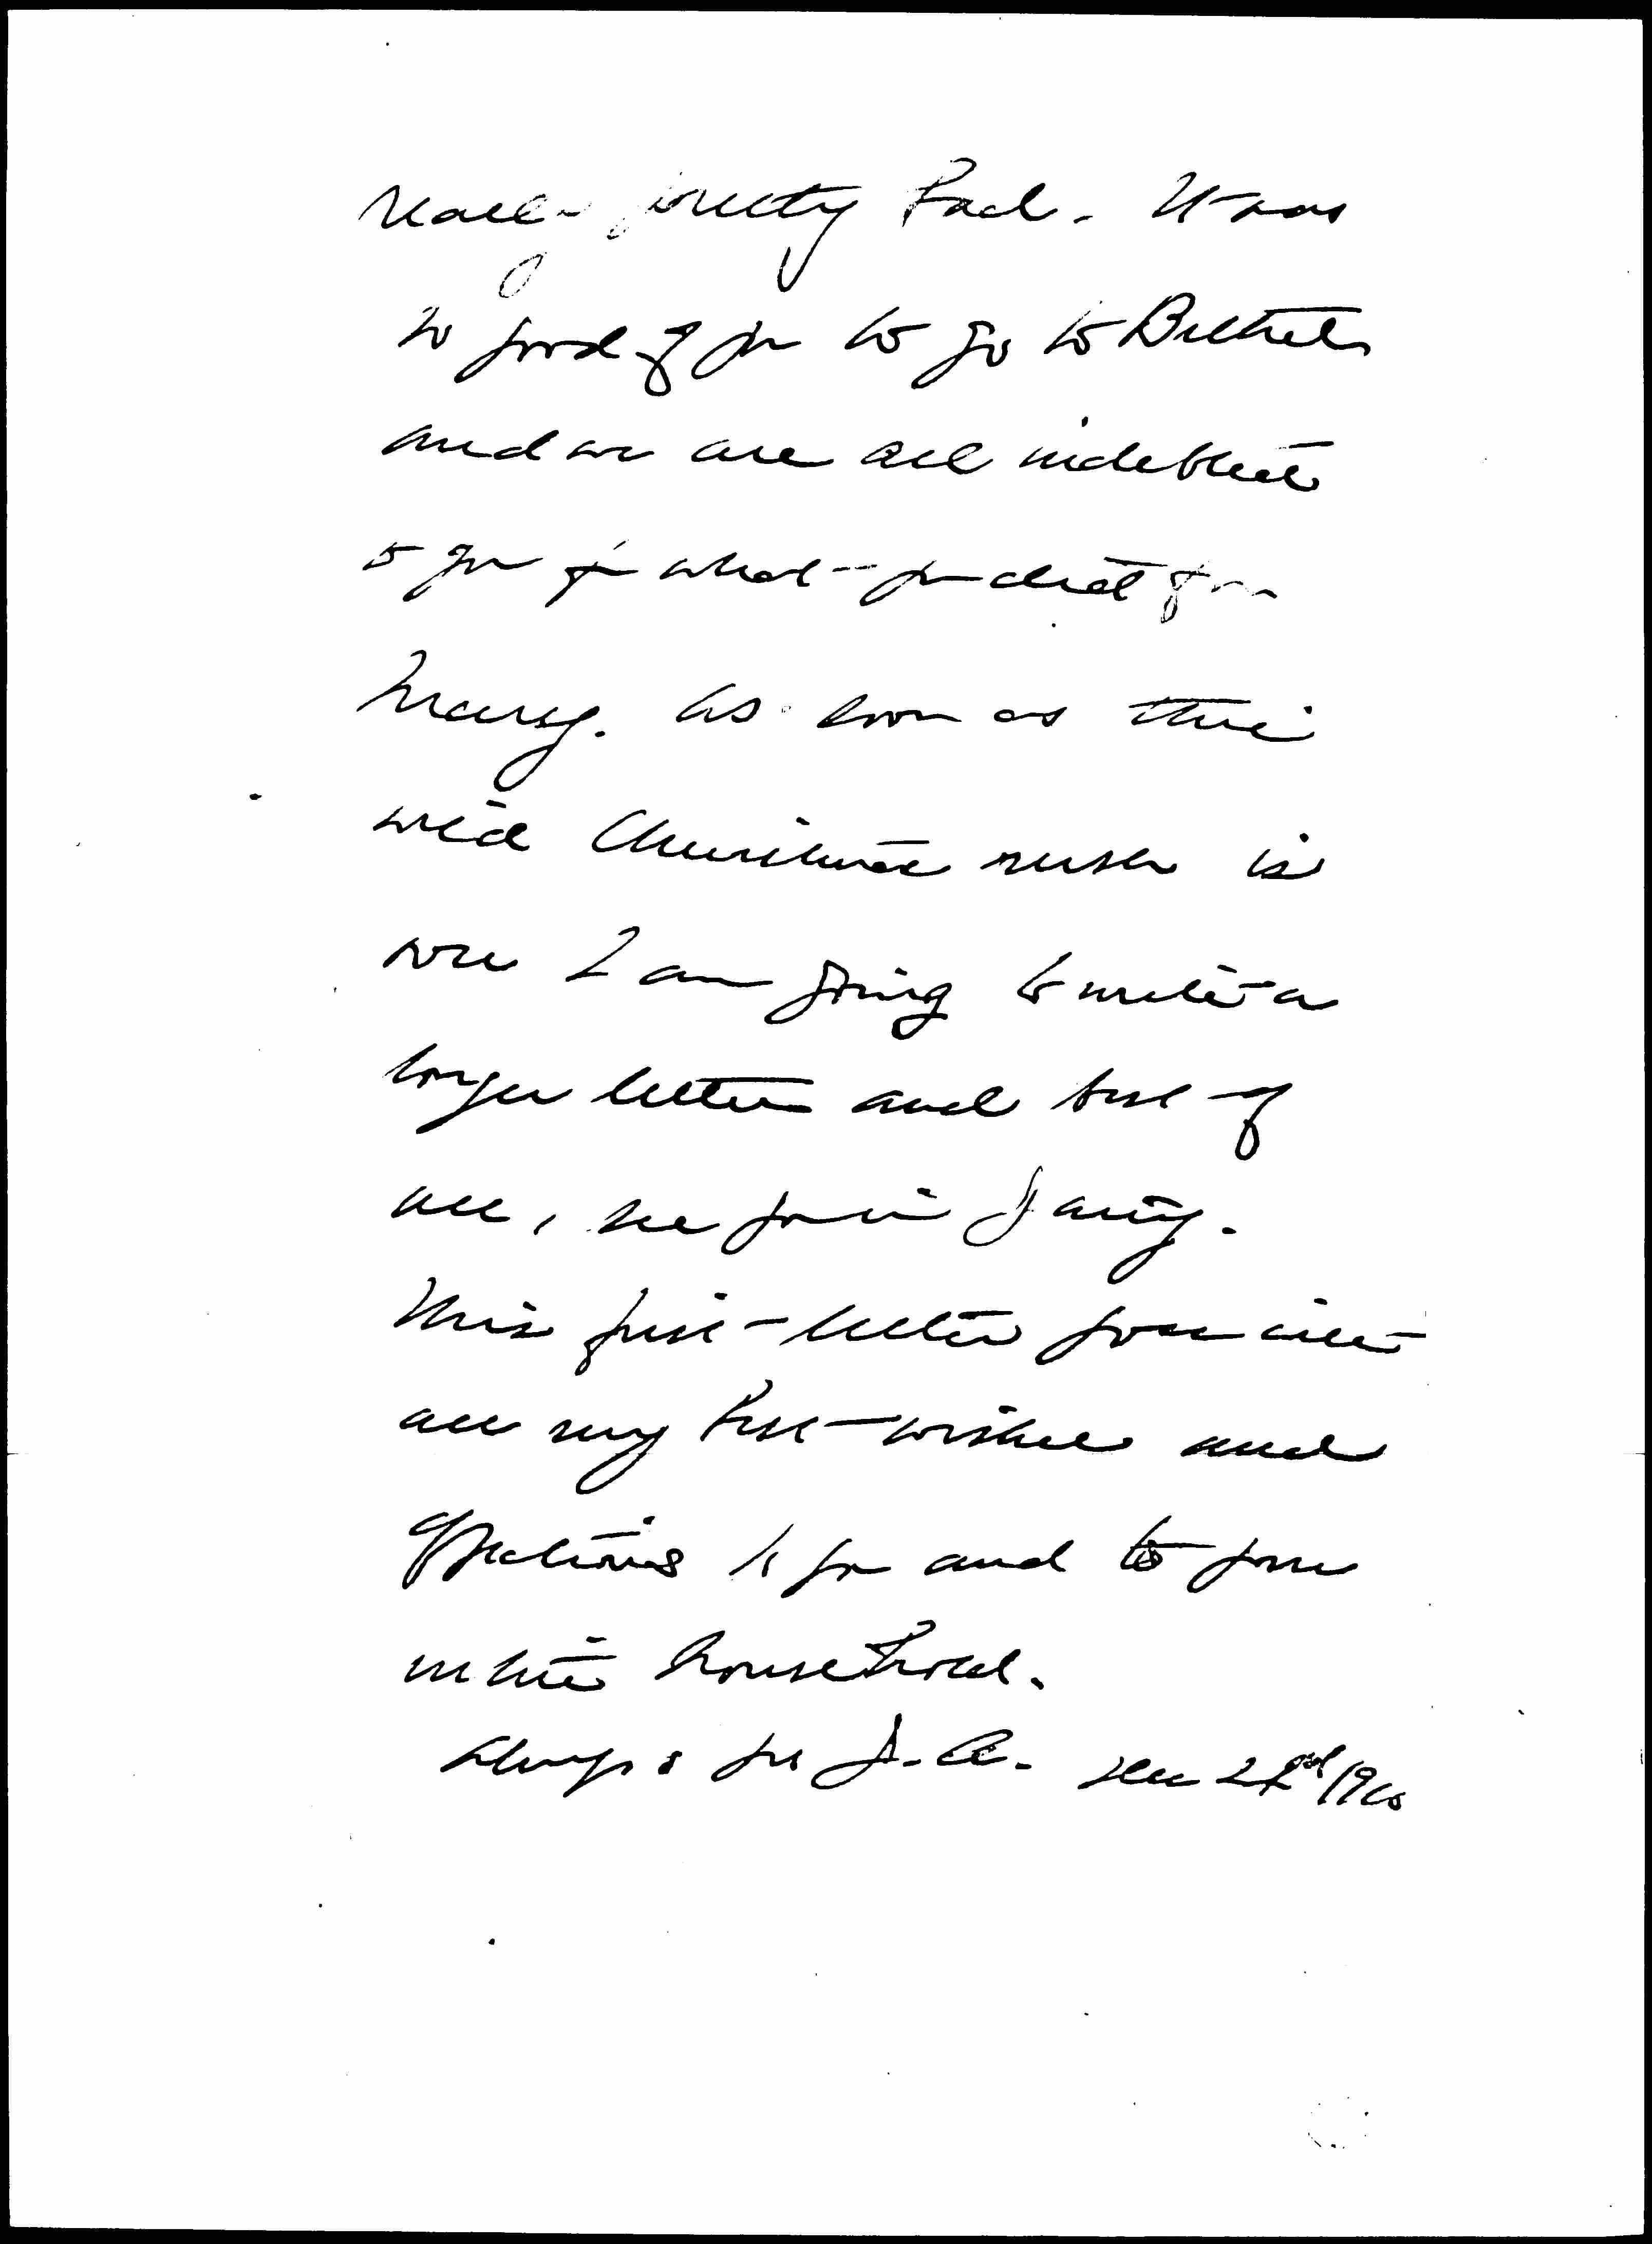 really pretty bad. It was
so good of you to go to Bethel
and we are all indebted
to you for what you did for
Mary. As soon as this
wild Christmas rush is
over I am going to write a
longer letter and best of
all, see you in
This first letter goes with
all my best wishes and
affections to you and to your
entire household.
Always yrs J.A. Dec 22nd 1960